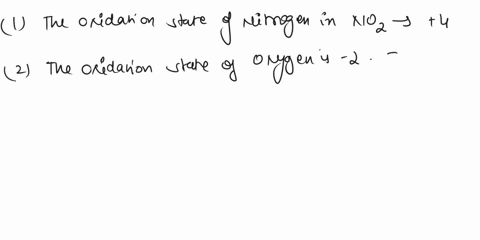 (1) The oxidation state of Nitrogen in NO2 → +4
(2) The oxidation state of oxygen is -2. -